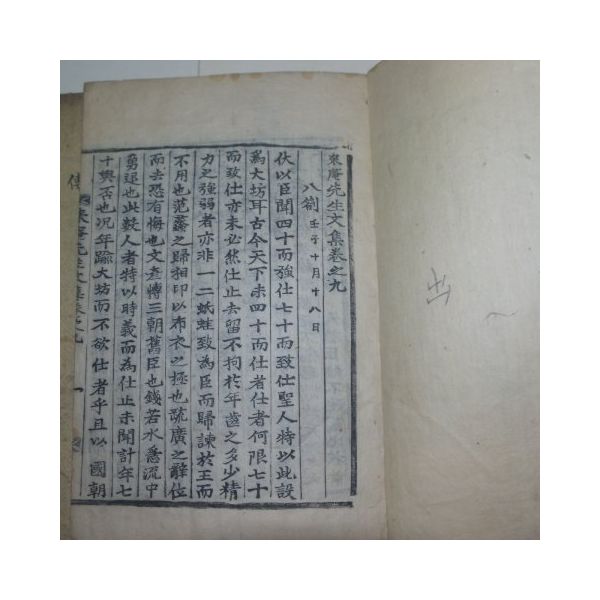 來庵先生文集卷之九
八箚 壬子十月十八日
伏以臣聞四十而強仕七十而致仕聖人特以此設
爲大坊耳古今天下未四十而仕者仕者何限七十
而致仕亦未必然仕止去留不拘於年齒之多少精
力之強弱者亦非一二蚔蛙致為臣而歸諫於王而
不用也范蠡之歸相印以布衣之極也疏廣之辭位
而去恐有悔也文彦博三朝舊臣也錢若水急流中
勇退也此數人者特以時義而為仕止未聞計年七
十與否也况年踰大坊而不欲仕者乎且以 國朝
來庵先生文集卷之九 一